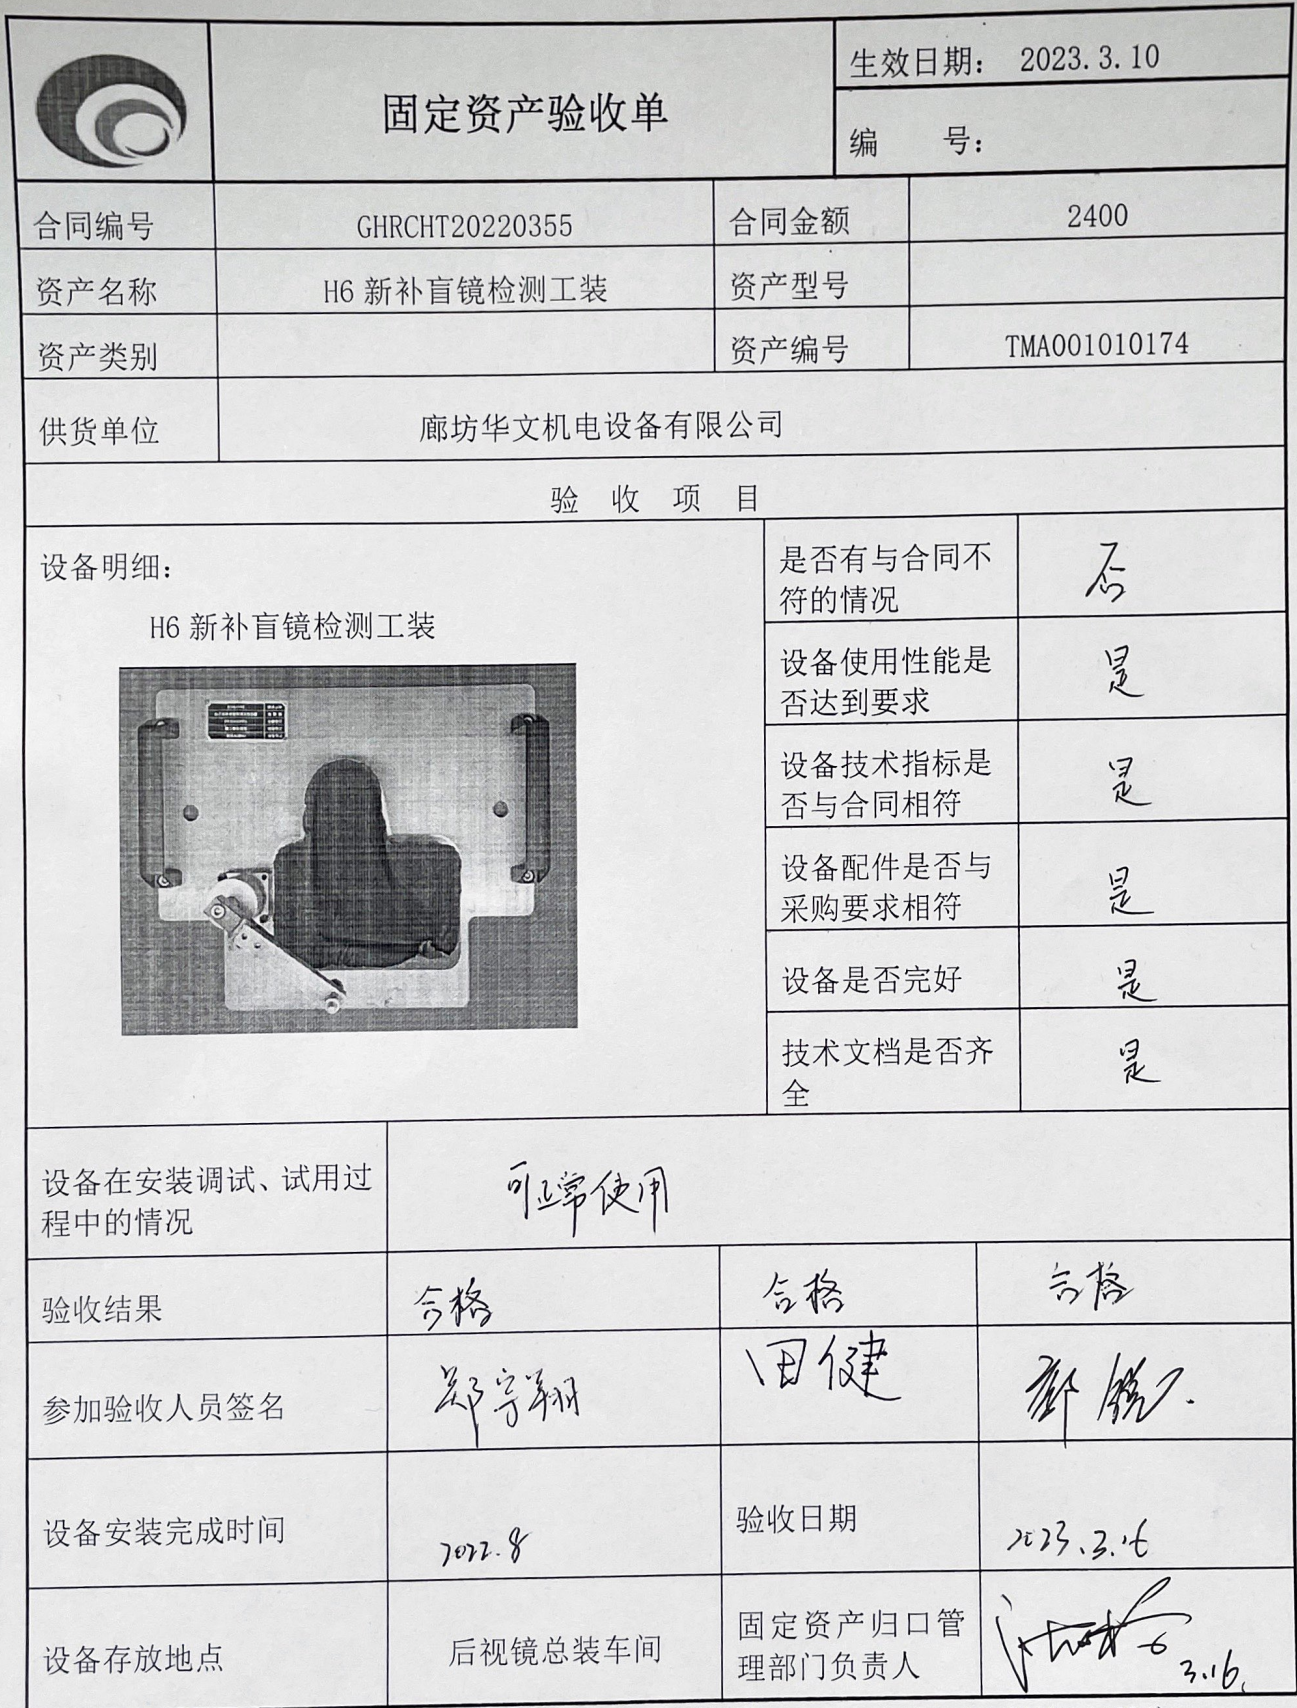 固定资产验收单
生效日期： 2023.3.10
编 号：
合同编号 GHRCHT20220355 合同金额 2400
资产名称 H6 新补盲镜检测工装 资产型号
资产类别 资产编号 TMA001010174
供货单位 廊坊华文机电设备有限公司
验 收 项 目
设备明细：
H6 新补盲镜检测工装
是否有与合同不
符的情况 否
设备使用性能是
否达到要求 是
设备技术指标是
否与合同相符 是
设备配件是否与
采购要求相符 是
设备是否完好 是
技术文档是否齐
全 是
设备在安装调试、试用过
程中的情况 可正常使用
验收结果 合格 合格 合格
参加验收人员签名 郑宇翔 田健
设备安装完成时间 2022.8 验收日期 2023.3.16
设备存放地点 后视镜总装车间 固定资产归口管
理部门负责人 3.16.